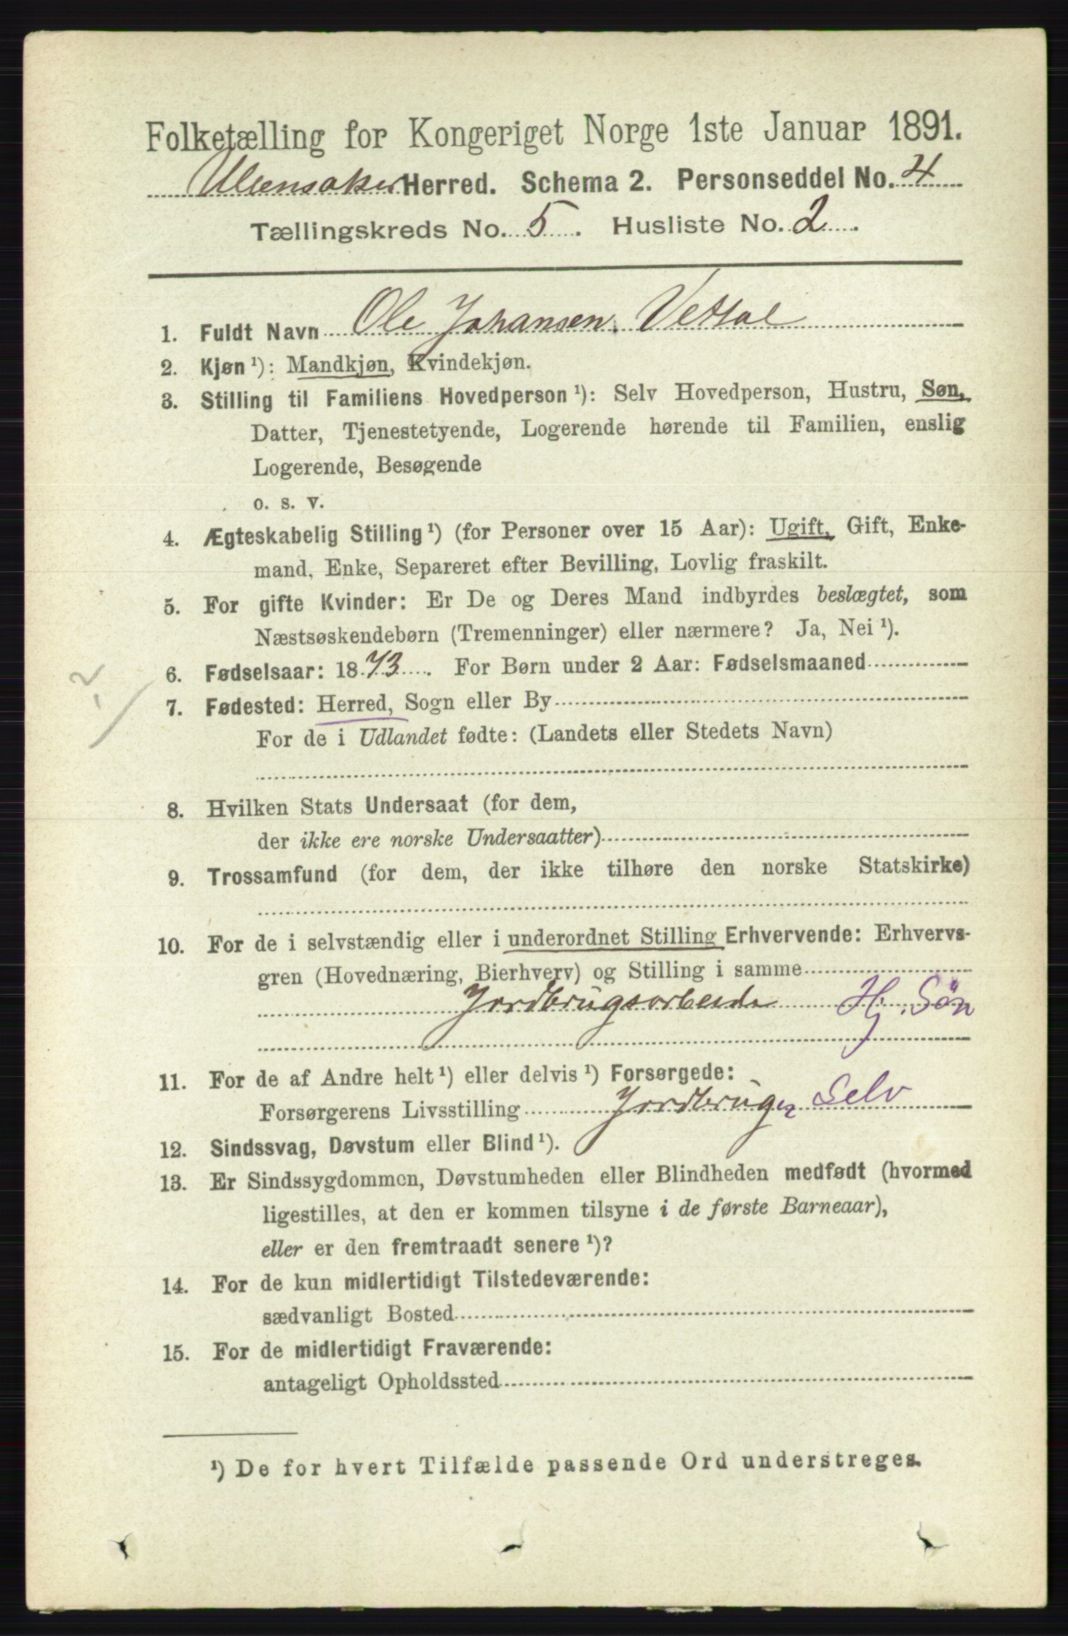 Folketælling for Kongeriget Norge 1ste Januar 1891.
Ullensaker Herred. Schema 2. Personseddel No. 4
Tællingskreds No. 5. Husliste No. 2.
1. Fuldt Navn Ole Johansen Vettal
2. Kjøn ¹): Mandkjøn, Kvindekjøn.
3. Stilling til Familiens Hovedperson ¹): Selv Hovedperson, Hustru, Søn,
Datter, Tjenestetyende, Logerende hørende til Familien, enslig
Logerende, Besøgende
o. s. v.
4. Ægteskabelig Stilling ¹) (for Personer over 15 Aar): Ugift, Gift, Enke-
mand, Enke, Separeret efter Bevilling, Lovlig fraskilt.
5. For gifte Kvinder: Er De og Deres Mand indbyrdes beslægtet, som
Næstsøskendebørn (Tremenninger) eller nærmere? Ja, Nei ¹).
6. Fødselsaar: 1873. For Børn under 2 Aar: Fødselsmaaned
7. Fødested: Herred, Sogn eller By
For de i Udlandet fødte: (Landets eller Stedets Navn)
8. Hvilken Stats Undersaat (for dem,
der ikke ere norske Undersaatter)
9. Trossamfund (for dem, der ikke tilhøre den norske Statskirke)
10. For de i selvstændig eller i underordnet Stilling Erhvervende: Erhvervs-
gren (Hovednæring, Bierhverv) og Stilling i samme
Jordbrugsarbeide Hj. Søn
11. For de af Andre helt ¹) eller delvis ¹) Forsørgede:
Forsørgerens Livsstilling Jordbruger Selv
12. Sindssvag, Døvstum eller Blind ¹).
13. Er Sindssygdommen, Døvstumheden eller Blindheden medfødt (hvormed
ligestilles, at den er kommen tilsyne i de første Barneaar),
eller er den fremtraadt senere ¹)?
14. For de kun midlertidigt Tilstedeværende:
sædvanligt Bosted
15. For de midlertidigt Fraværende:
antageligt Opholdssted
¹) De for hvert Tilfælde passende Ord understreges.